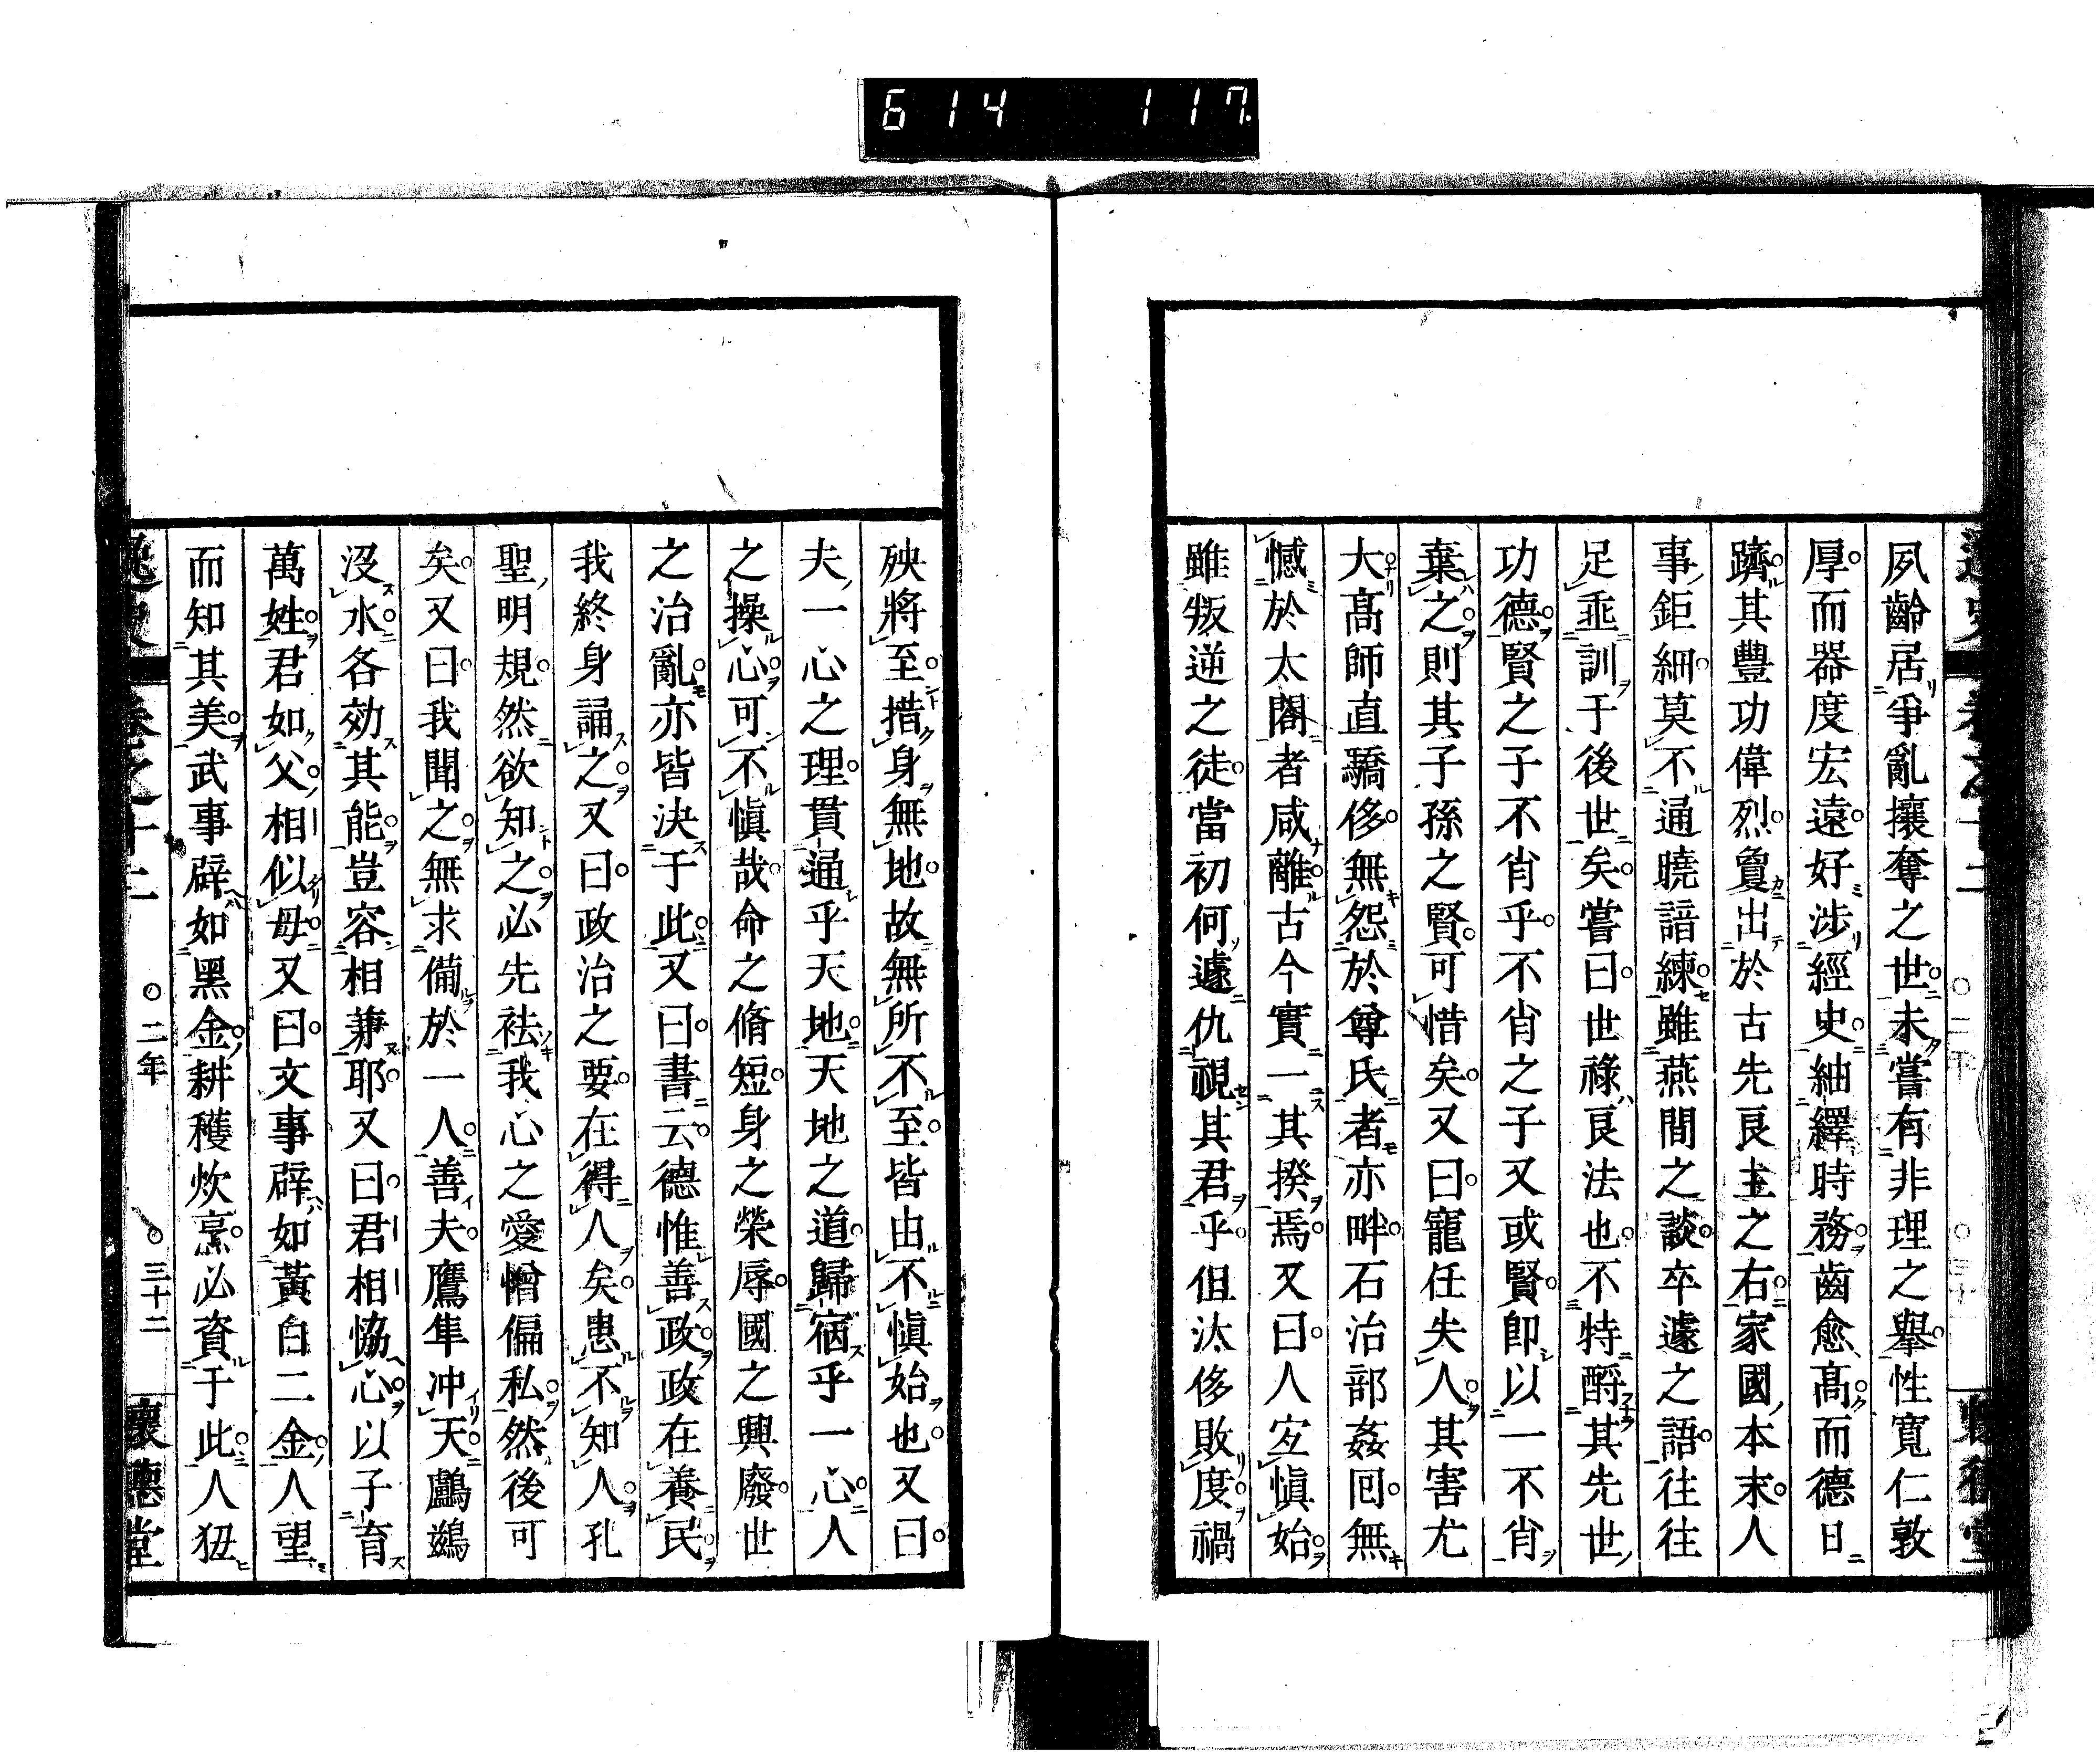 614 117.
夙齡居爭亂攘奪之世未嘗有非理之擧性寬仁敦
厚而器度宏遠好涉經史紬繹時務齒愈高而德日
躋其豐功偉烈夐出於古先良主之右家國本末人
事鉅細莫不通曉諳練雖燕閒之談卒遽之語往往
足垂訓于後世矣嘗曰世祿良法也不特酹其先世
功德賢之子不肖乎不肖之子又或賢卽以一不肖
棄之則其子孫之賢可惜矣又曰寵任失人其害尤
大高師直驕侈無怨於尊氏者亦畔石治部姦回無
憾於太閤者咸離古今實一其揆焉又曰人宜愼始
雖叛逆之徒當初何遽仇視其君乎但汰侈敗度禍
殃將至措身無地故無所不至皆由不愼始也又曰
夫一心之理貫通乎天地天地之道歸宿乎一心人
之操心可不愼哉命之脩短身之榮辱國之興廢世
之治亂亦皆決于此又曰書云德惟善政政在養民
我終身誦之又曰政治之要在得人矣患不知人孔
聖明規然欲知之必先袪我心之愛憎偏私然後可
矣又曰我聞之無求備於一人善夫鷹隼冲天鸕鷀
沒水各効其能豈容相兼耶又曰君相協心以子育
萬姓君如父相似母又曰文事辟如黃白二金人望
而知其美武事辟如黑金耕穫炊烹必資于此人狃
逸史 卷之十二 二年 三十二 懷德堂